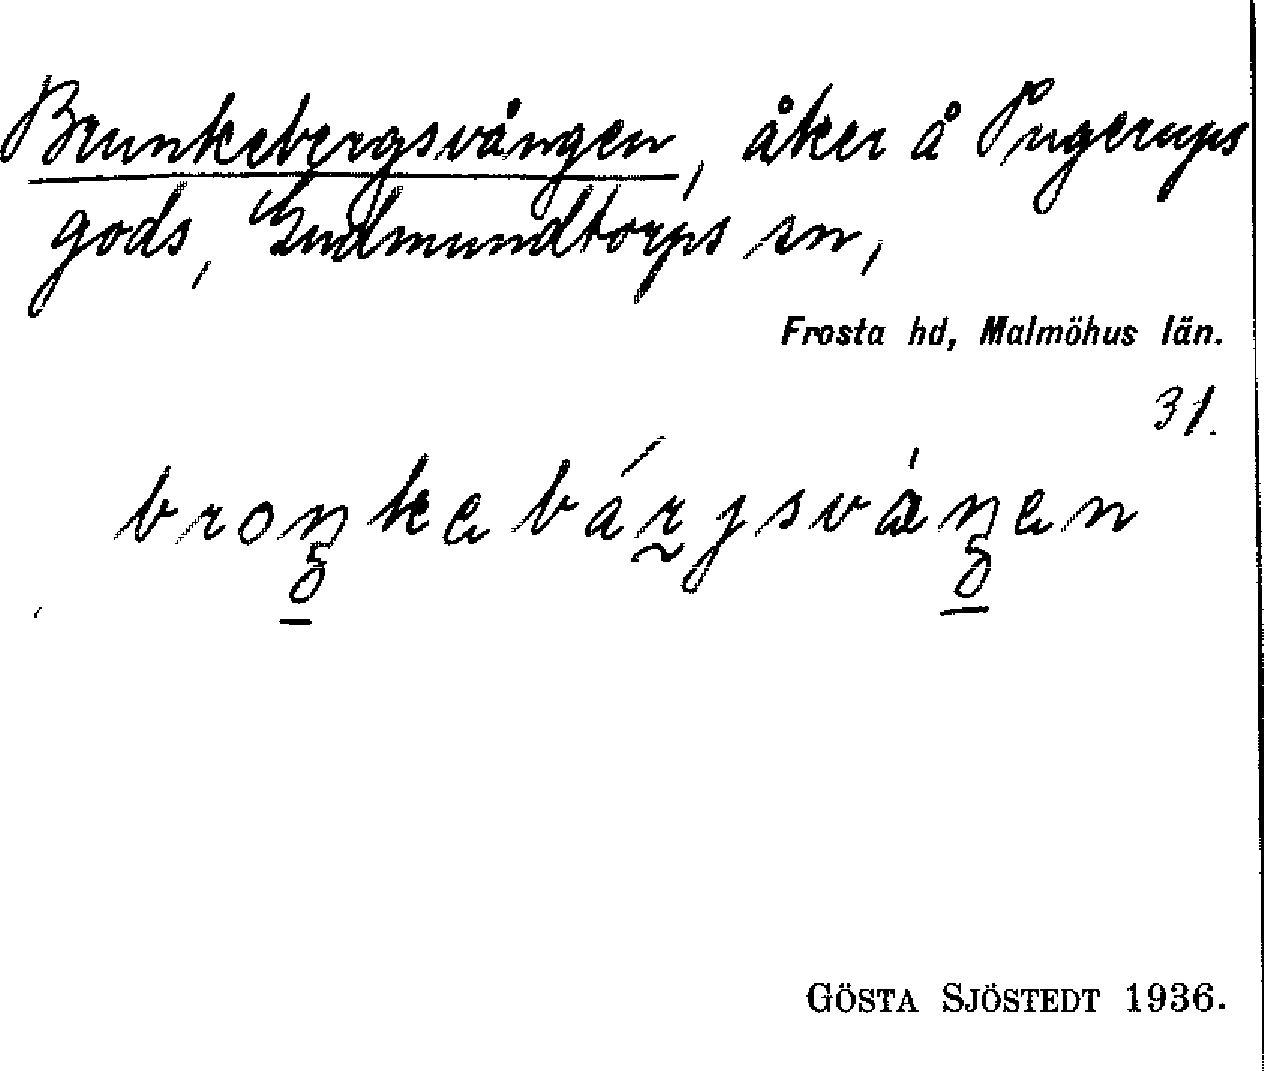 Brunkebergsvången, åker å Pugerups
gods, Gudmundtorps sn,
Frosta hd, Malmöhus län.
31.
broŋkebárjsvàŋen
GÖSTA SJÖSTEDT 1936.